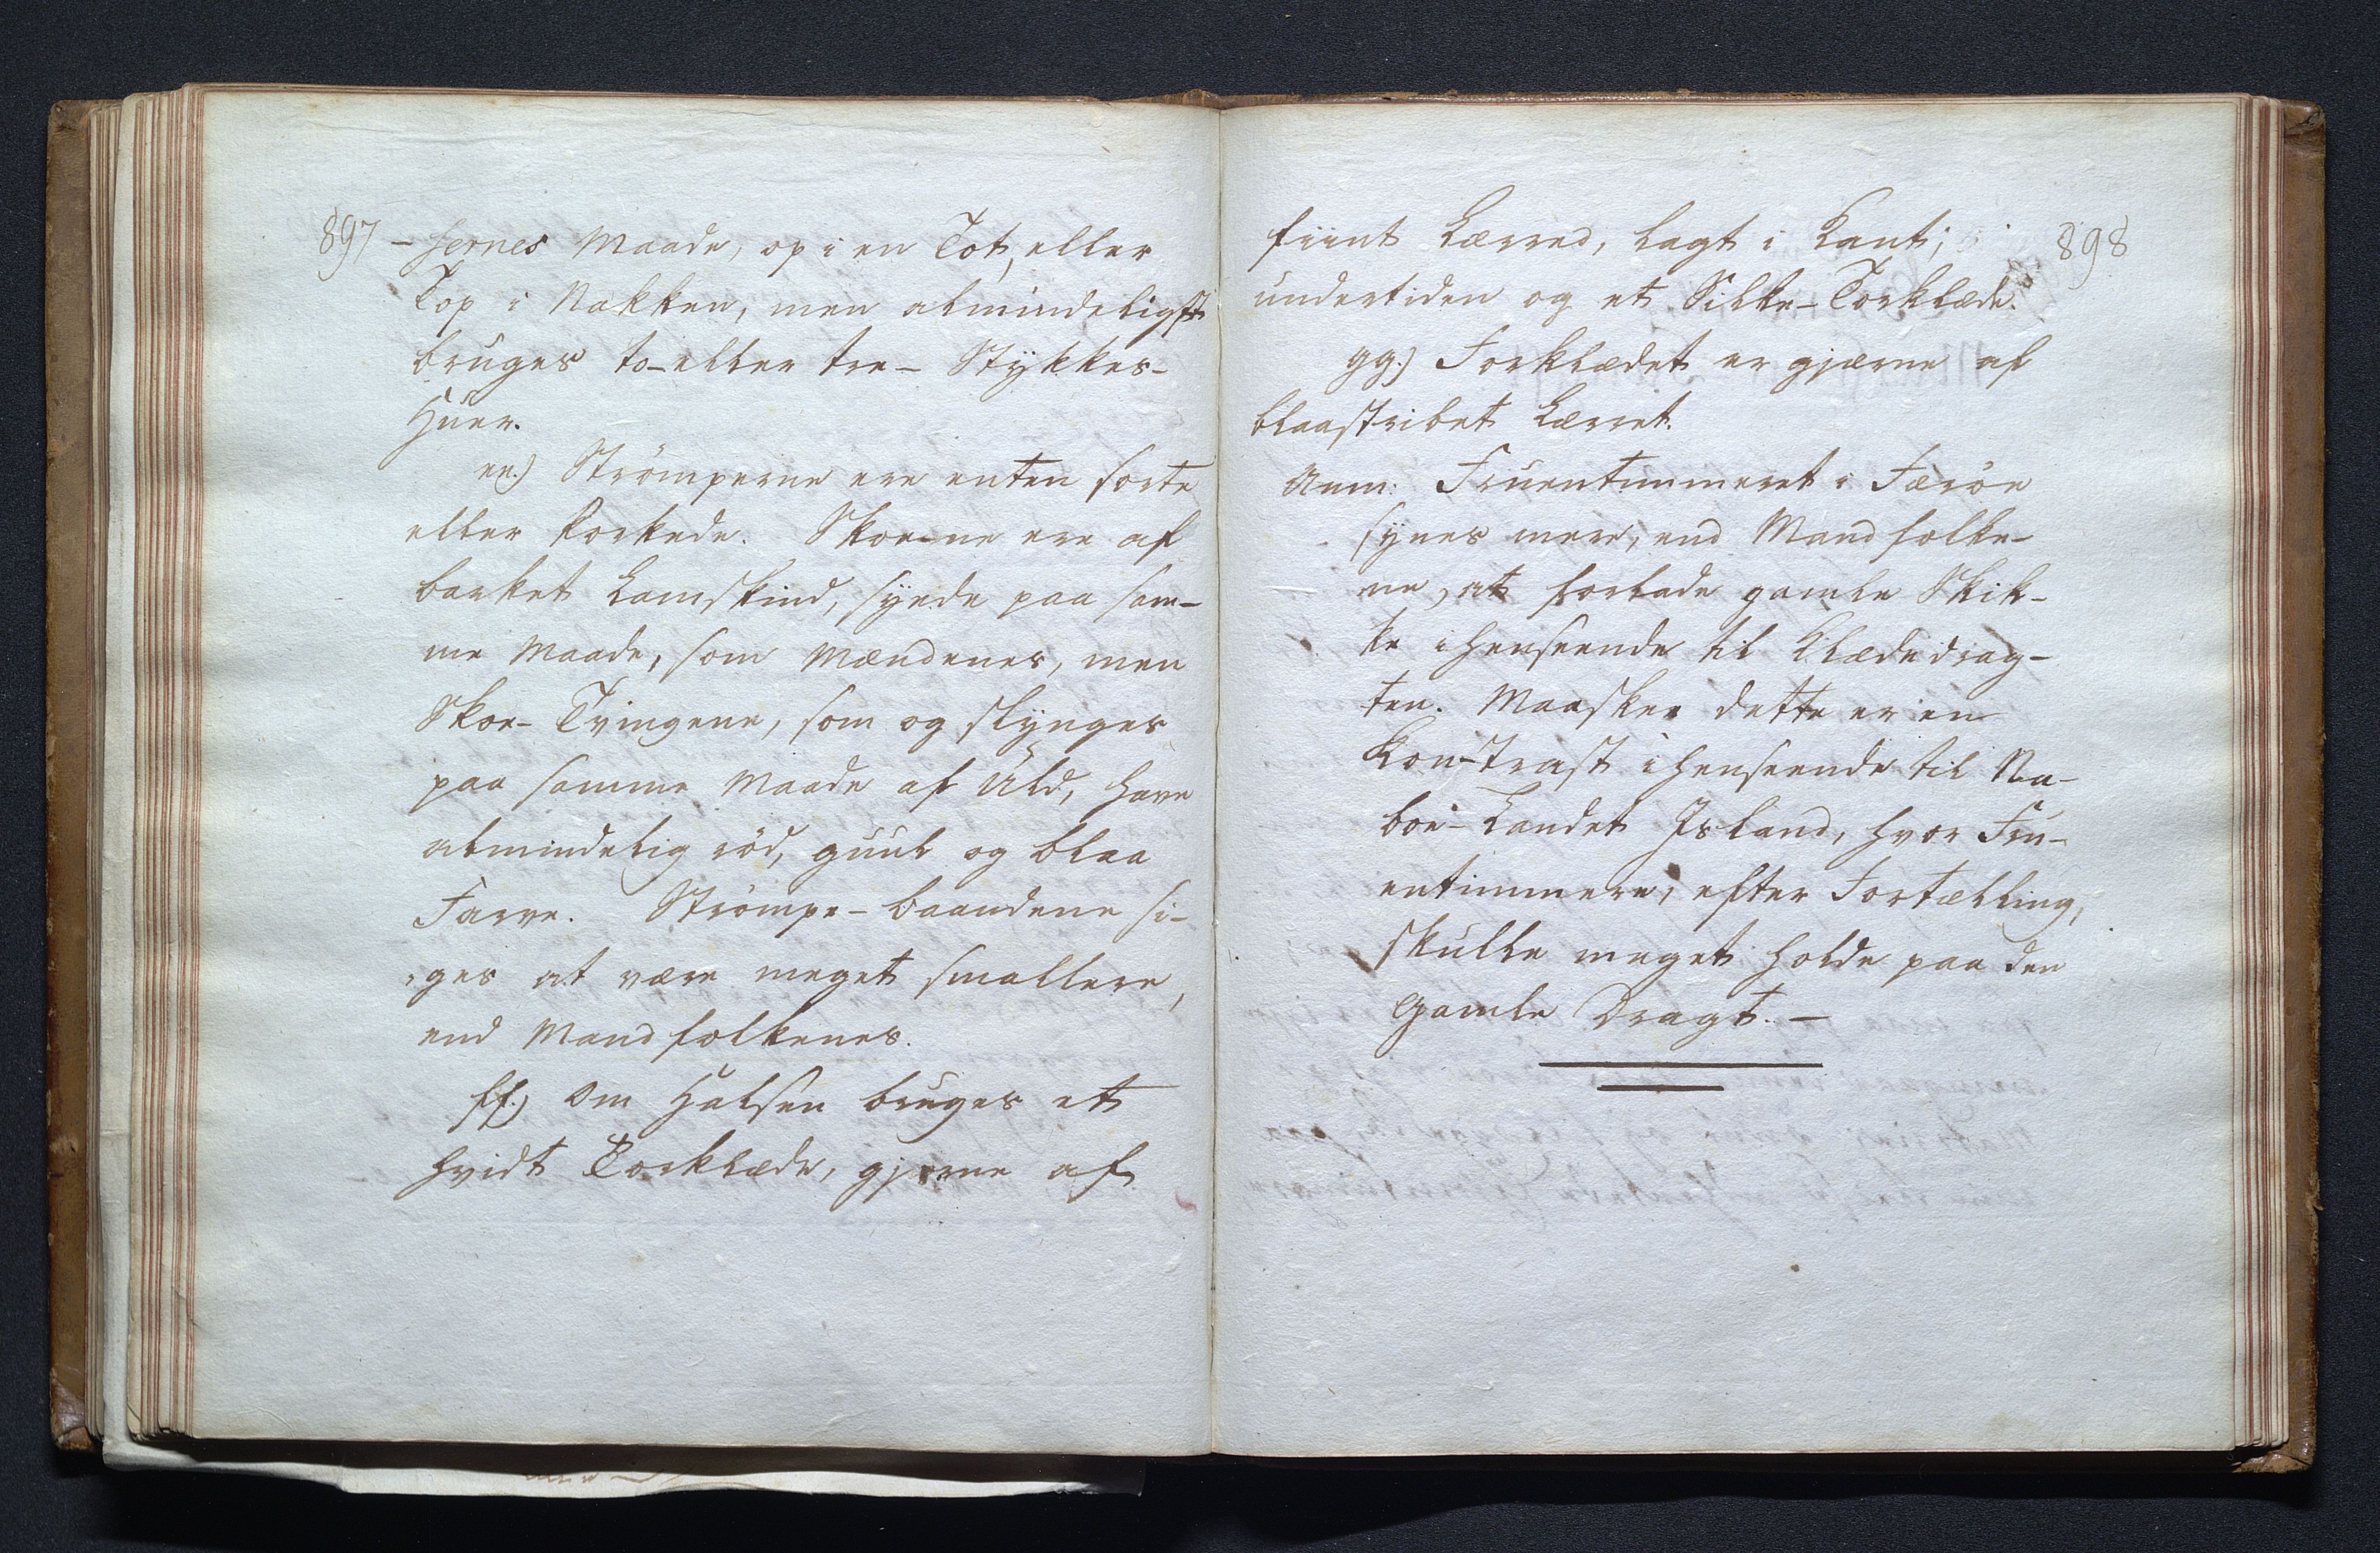 897 – sernes Maade, op i en Tot, eller
Top i Nakken, men almindeligst
bruges to- eller tre- Stykkes-
Huer.
ee.) Strömperne ere enten sorte
eller korkede. Skoene ere af
barket Lamskind, syede paa sam-
me Maade, som Mændenes, men
Skoe-Tvingene, som og slynges
paa samme Maade af Uld, have
almindelig röd, guul og blaa
Farve. Strömpe-baandene si-
ges at være meget smallere,
end Mandfolkenes.
ff.) Om Halsen bruges et
hvidt Törklæde, gjerne af
fiint Lærred, lagt i Kant; 898
undertiden og et Silke-Törklæde.
gg.) Forklædet er gjærne af
blaastribet Lærret.
Anm: Fruentimmeret i Færöe
synes mere, end Mandfolke-
ne, at forlade gamle Skik-
ke i Henseende til Klædedrag-
ten. Maaskee dette er en
Kontrast i Henseende til Na-
boe-Landet Island, hvor Fru-
entimmere, efter Fortælling,
skulle meget holde paa den
gamle Dragt. –